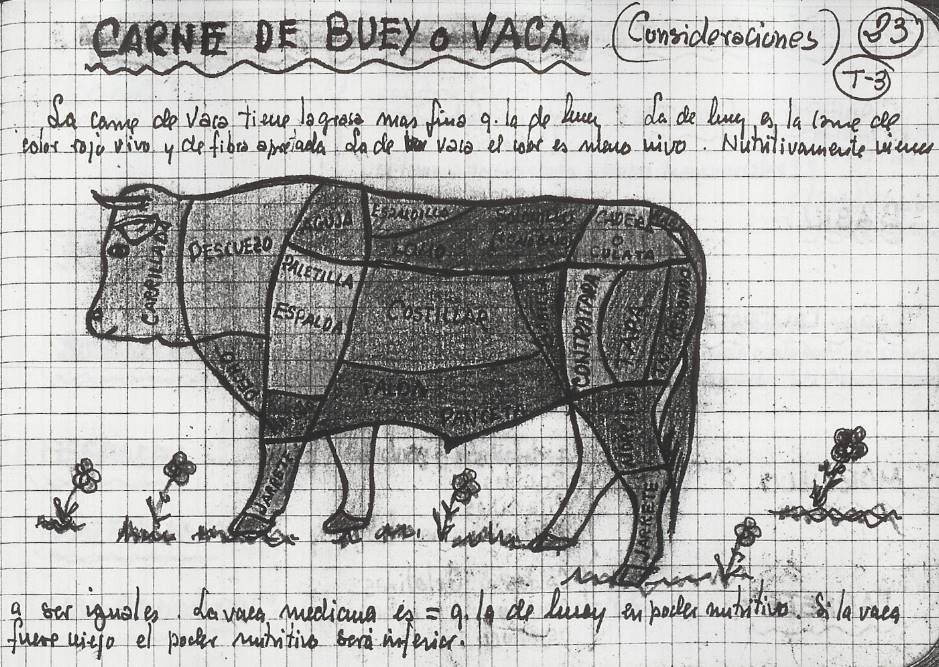 CARNE DE BUEY o VACA (Consideraciones) 23
T-3
La carne de vaca tiene la grasa mas fina q. la de buey. La de buey es la carne de
color rojo vivo y de fibra apretada La de vaca el color es meno vivo. Nutritivamente vienen
CARRILLADA
DESCUEZO
AGUJA
ESPALDILLA
LOMO
SOLOMILLO
CADERA
O
CULATA
PALETILLA
ESPALDA
COSTILLAR
CONTRATAPA
TAPA
PECHO
FALDA
PANCETA
JARRETE
JARRETE
a ser iguales. La vaca mediana es = q. la de buey en poder nutritivo Si la vaca
fuere viejo el poder nutritivo será inferior.